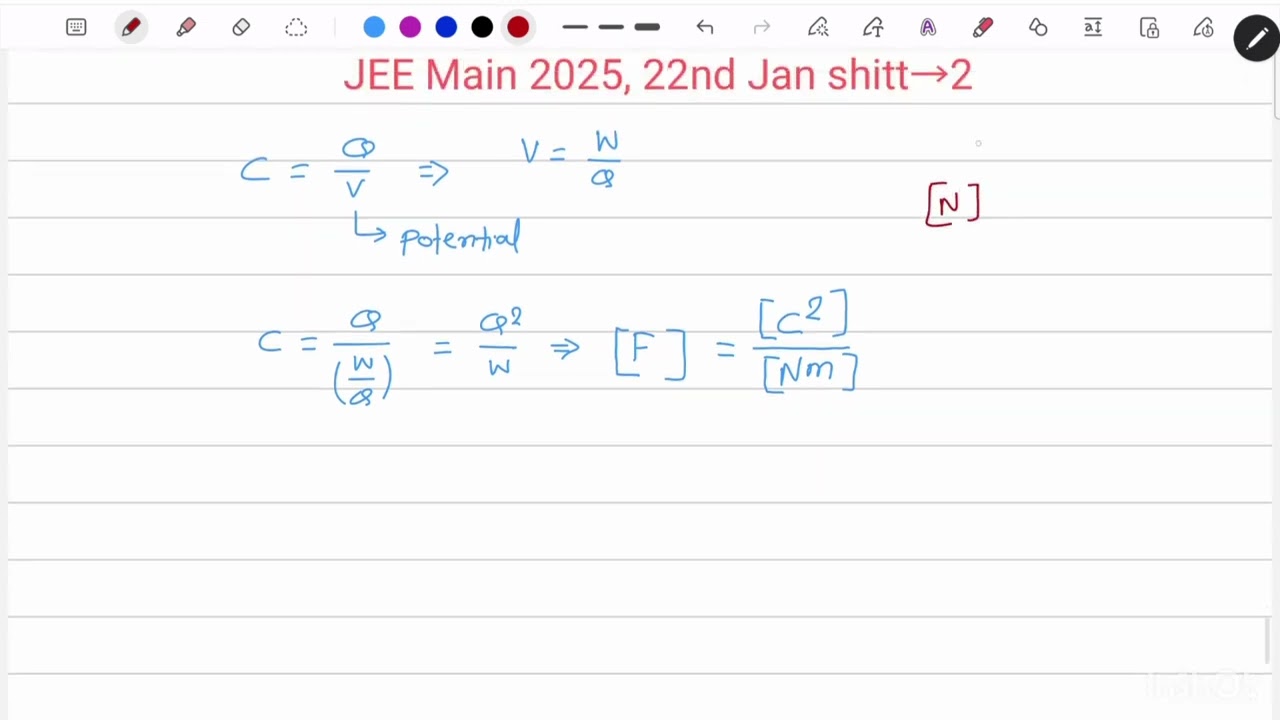 JEE Main 2025, 22nd Jan shitt→2
C = Q/V ⇒ V = W/Q
[N]
↳ potential
C = Q/(W/Q) = Q²/W ⇒ [F] = [C²]/[Nm]